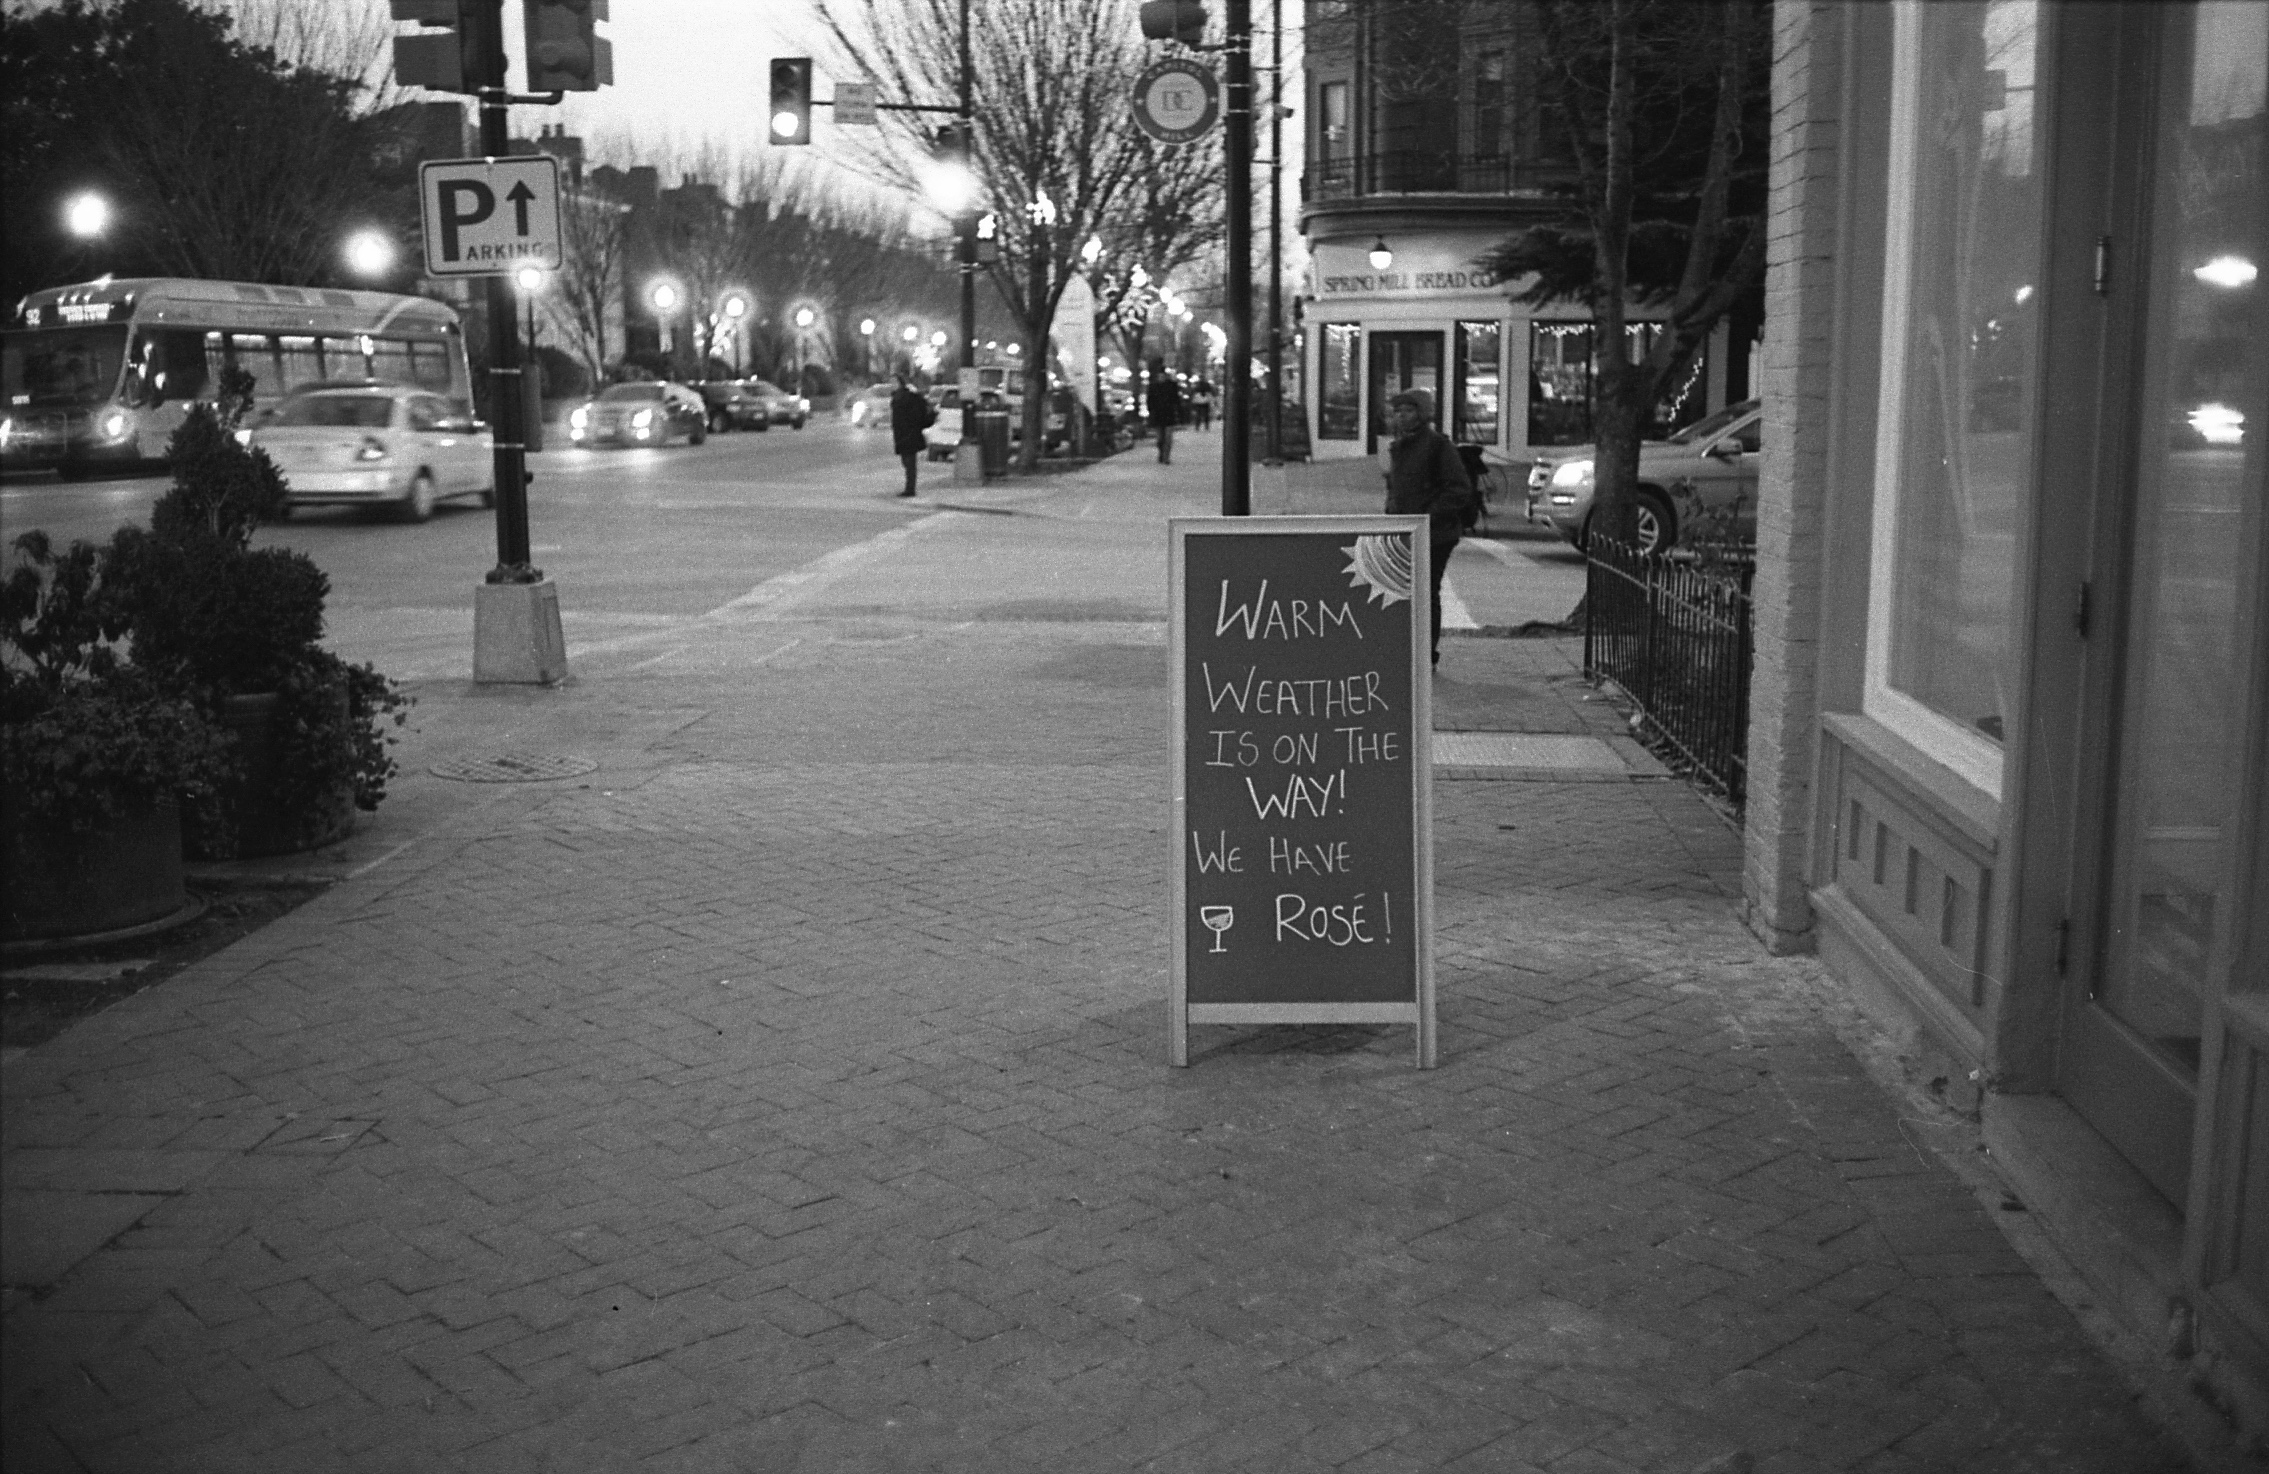 P↑
PARKING
DC
92
SPRING MILL BREAD CO
WARM
WEATHER
IS ON THE
WAY!
WE HAVE
ROSÉ!